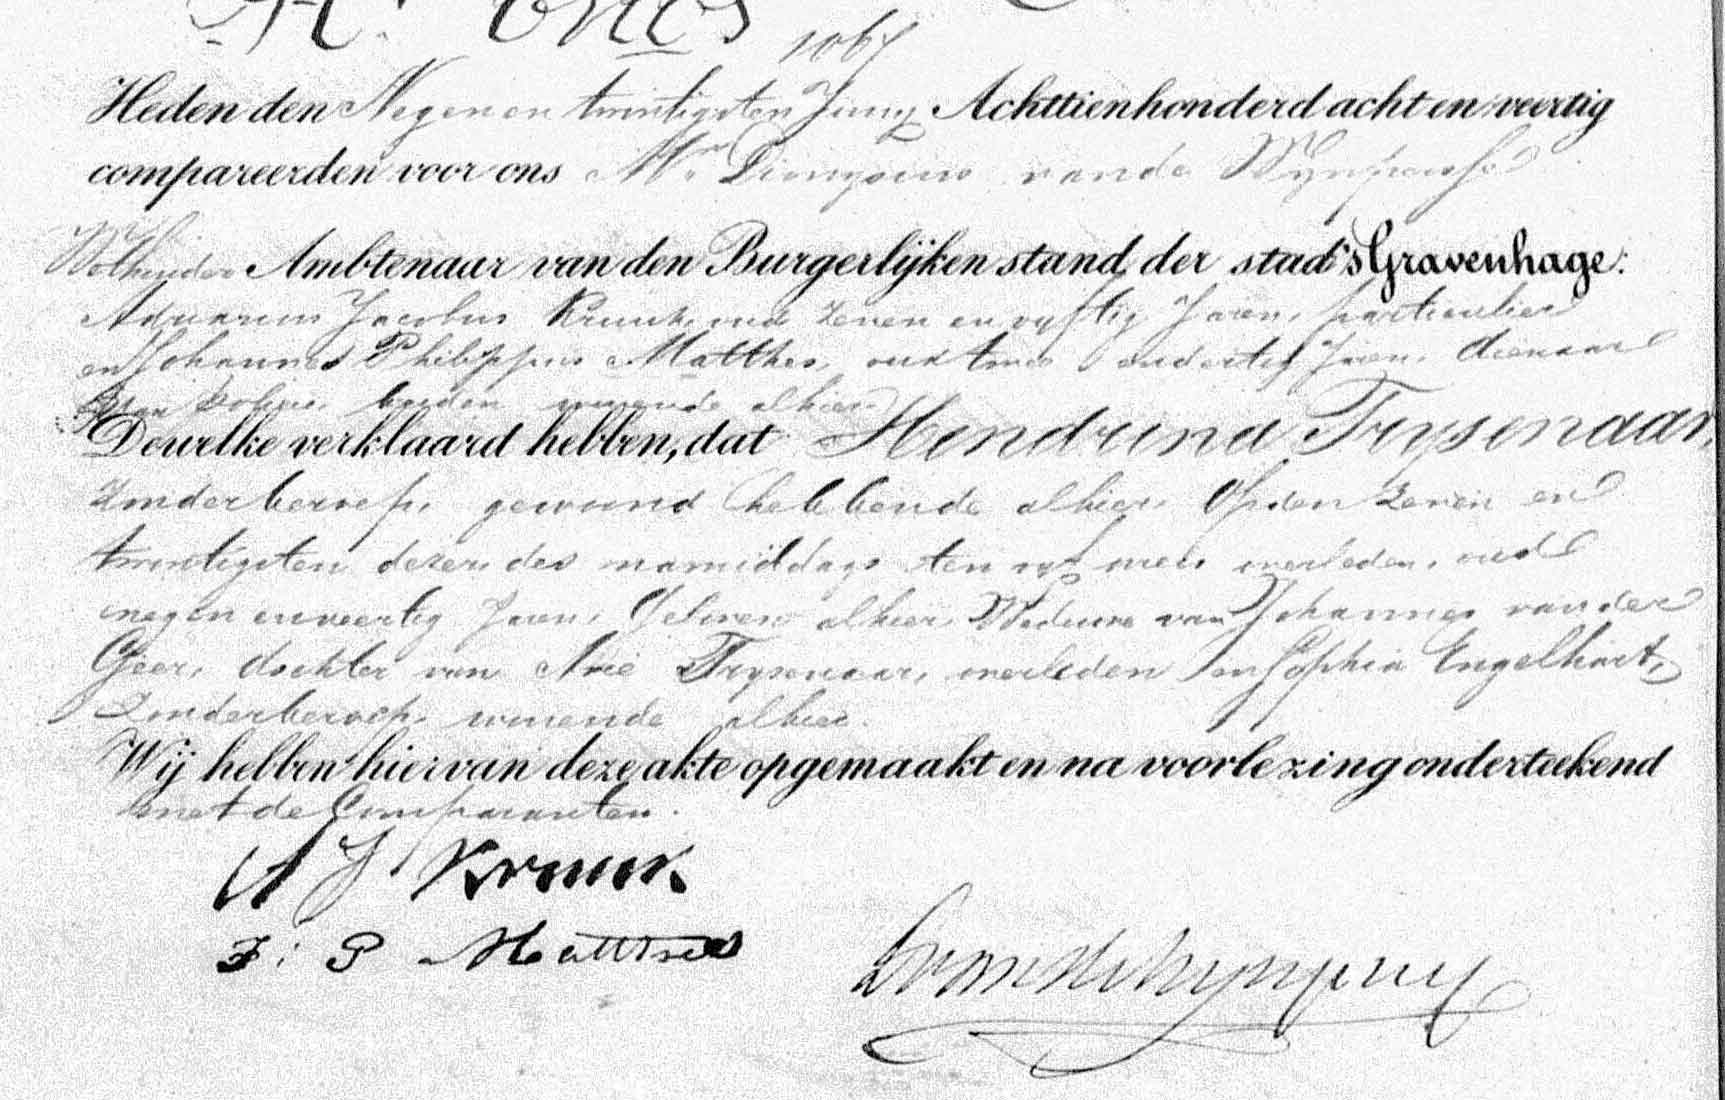 1067
Heden den Negen en twintigsten Juny Achttienhonderd acht en veertig
compareerden voor ons Mr. Dionysius van de Wynpersse
Wethouder Ambtenaar van den Burgerlijken stand der stad 's Gravenhage:
Adrianus Jacobus Kruuk, oud zeven en vyftig Jaren, particulier
en Johannes Philippus Matthes, oud twee en dertig Jaren, dienaar
van Policie, beiden wonende alhier
Dewelke verklaard hebben, dat Hendrina Trysenaar,
Zonder beroep, gewoond hebbende alhier, Op den Zeven en
twintigsten dezer des namiddags ten vyf uren overleden, oud
negen en veertig Jaren, Geboren alhier, Weduwe van Johannes van der
Geer, dochter van Arie Trysenaar, overleden en Sophia Engelhart,
Zonder beroep, wonende alhier.
Wij hebben hiervan deze akte opgemaakt en na voorlezing onderteekend
met de Comparanten.
A J Kruuk
J: P Matthes
D van de Wynpersse